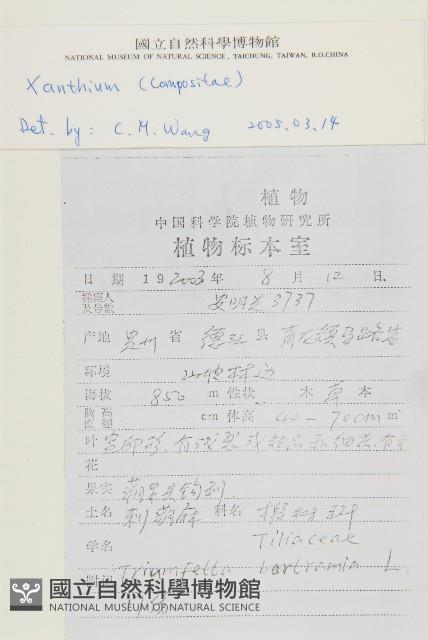 國立自然科學博物館
NATIONAL MUSEUM OF NATURAL SCIENCE, TAICHUNG, TAIWAN, R.O.CHINA
Xanthium (Compositae)
Det. by: C. M. Wang 2005.03.14
植物
中国科学院植物研究所
植物标本室
日期 19 2003 年 8 月 12 日.
采集人及号数 安明先 3737
产地 贵州 省 德江 县
环境 山地林边
海拔 850 m 性状 木 草 本
胸高直径 cm 体高 40-70cm m
叶 宽卵形,有浅裂
花
果实 蒴果具钩刺.
土名 刺蒴麻 科名 椴树科
Tiliaceae
学名
附记 Triumfetta bartramia L.
國立自然科學博物館
NATIONAL MUSEUM OF NATURAL SCIENCE